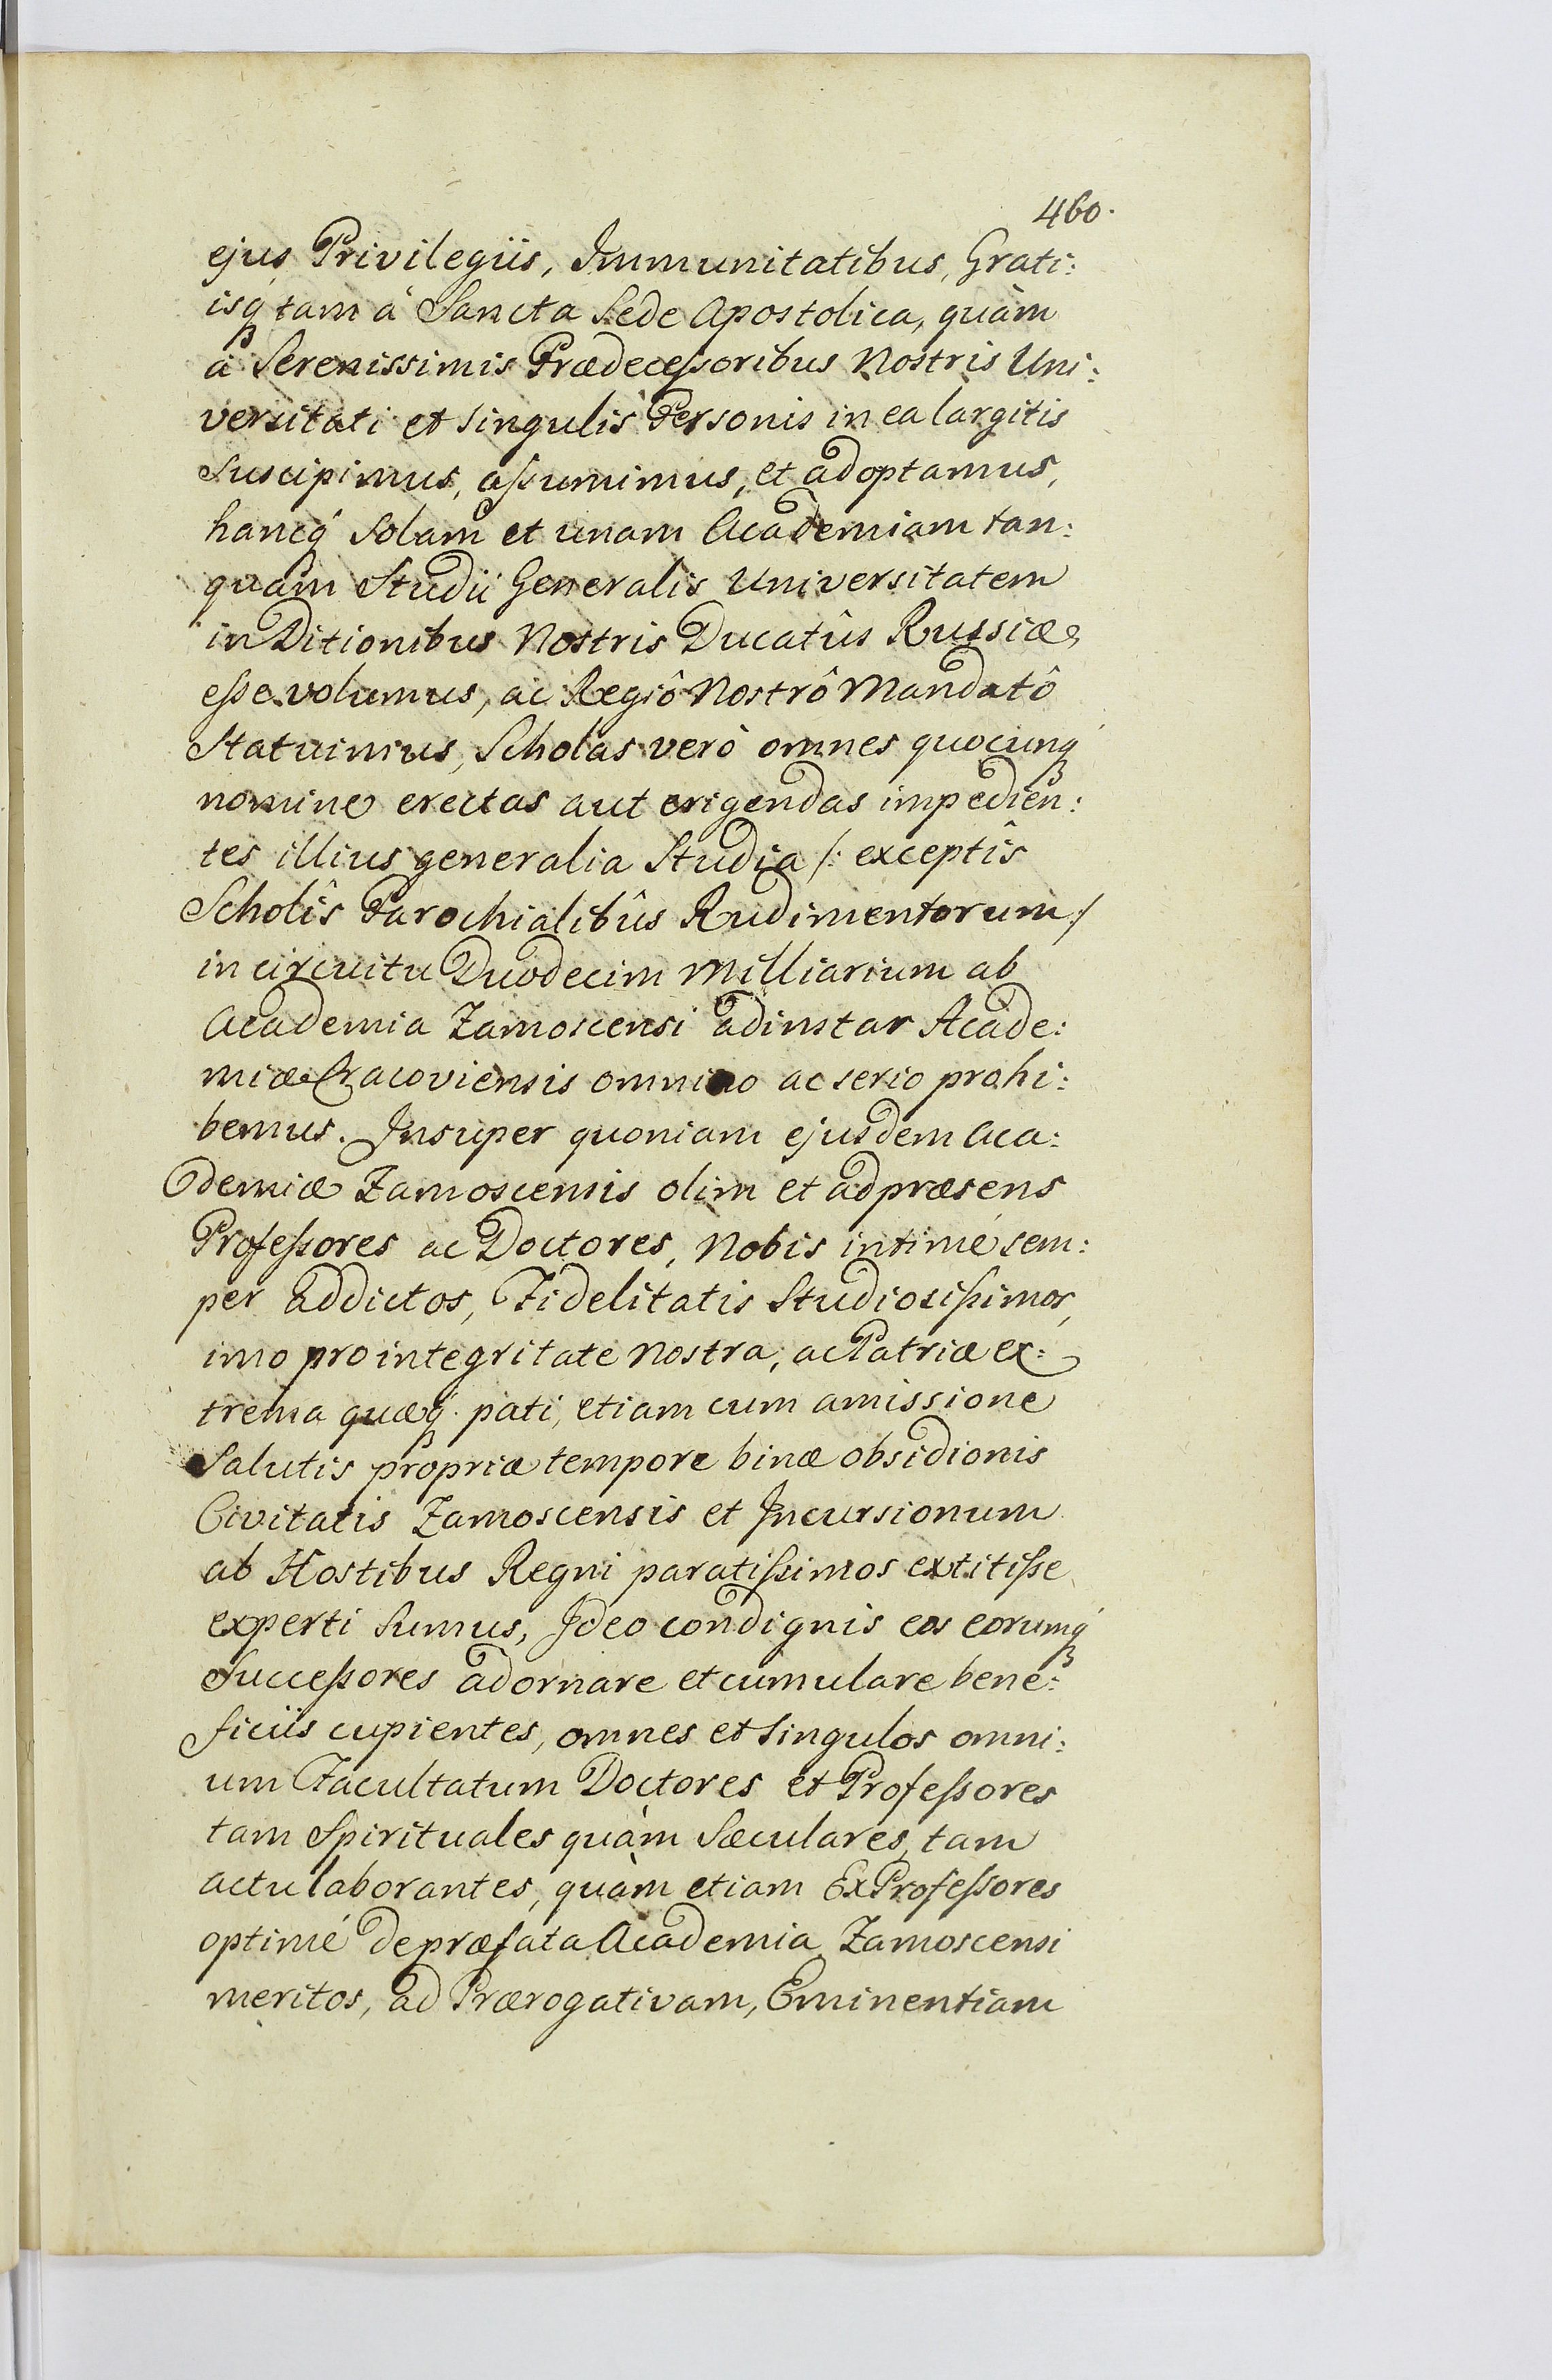 460.
ejus Privilegiis, Immunitatibus, Grati:
isq́ tam à Sancta Sede Apostolica, quàm
à Serenissimis Prædecessoribus Nostris Uni:
versitati et singulis Personis in ea largitis
Suscipimus, assumimus, et adoptamus,
hancq́ solam et unam Academiam tan:
quam Studii Generalis Universitatem
in Ditionibus Nostris Ducatûs Russiæ
esse volumus, ac Regiô Nostrô Mandatô
Statuimus, Scholas verò omnes quocunq́
nomine erectas aut erigendas impedien:
tes illius generalia Studia /: exceptîs
Scholîs Parochialibûs Rudimentorum :/
in circuitu Duodecim Milliarium ab
Academia Zamoscensi adinstar Acade:
miæ Cracoviensis omnino ac serio prohi:
bemus. Insuper quoniam ejusdem Aca:
demiæ Zamoscensis olim et ad præsens
Professores ac Doctores, Nobis intimé sem:
per addictos, Fidelitatis Studiosissimos,
imo pro integritate Nostra, ac Patriæ ex:
trema quæq́ pati, etiam cum amissione
Salutis propriæ tempore binæ obsidionis
Civitatis Zamoscensis et Incursionum
ab Hostibus Regni paratissimos extitisse
experti sumus, Ideo condignis eos eorumq́
Successores adornare et cumulare bene:
ficiis cupientes, omnes et singulos omni:
um Facultatum Doctores et Professores
tam Spirituales quàm Sæculares, tam
actu laborantes, quàm etiam ExProfessores
optimé de præfata Academia Zamoscensi
meritos, ad Prærogativam, Eminentiam